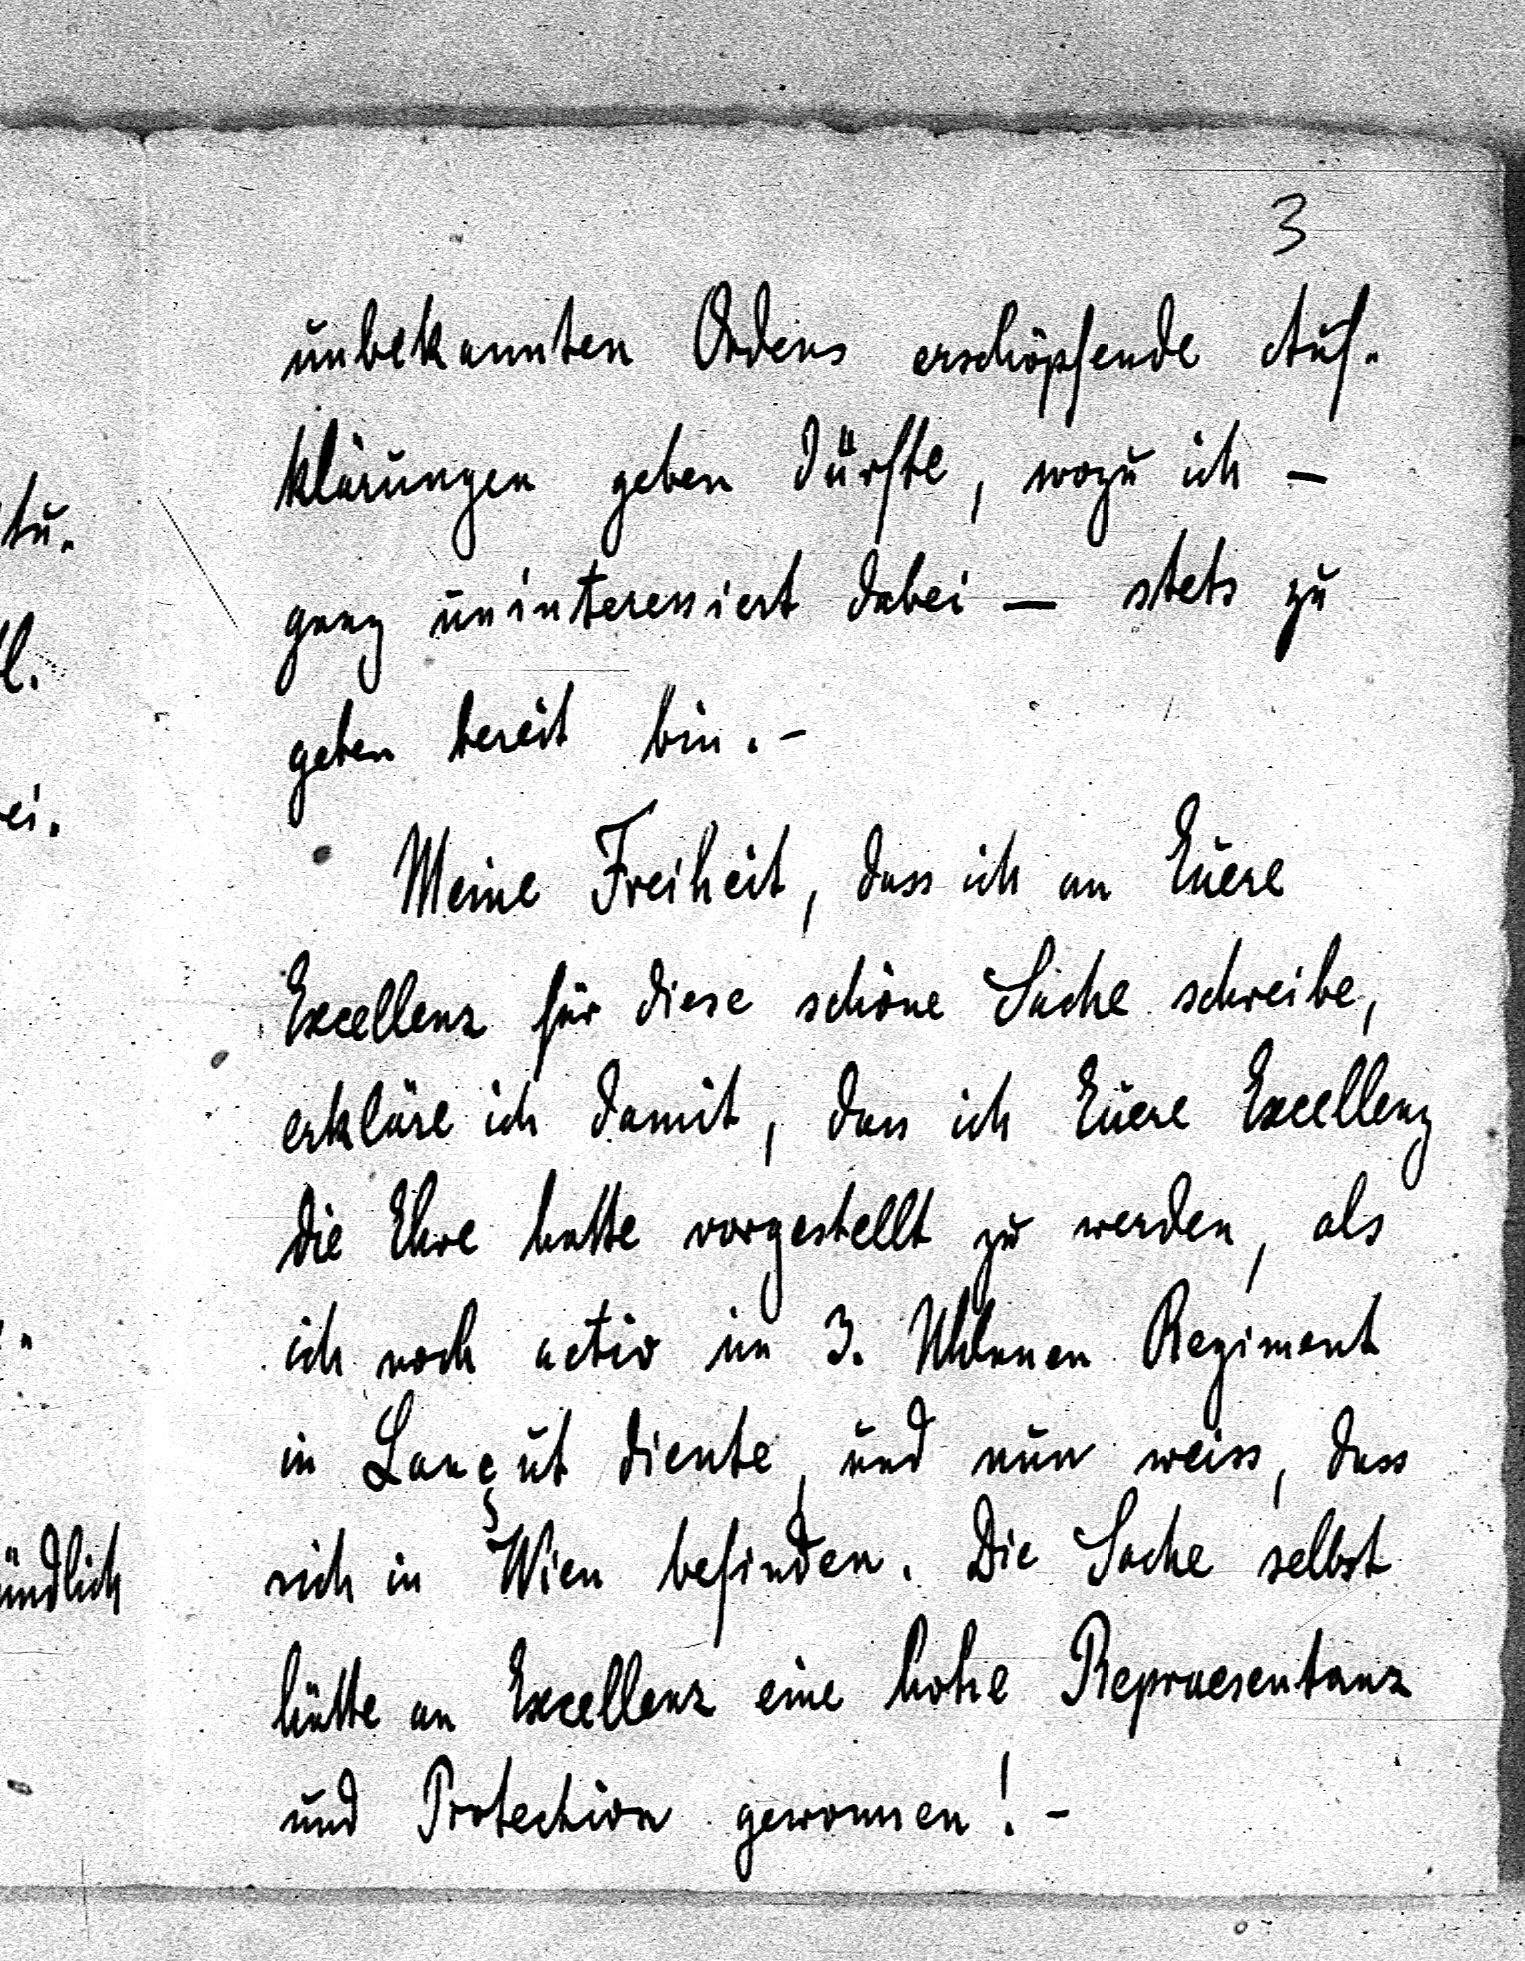 3
unbekannten Ordens erschöpfende Auf-
klärungen geben dürfte, wozu ich —
ganz uninteressiert dabei — stets zu
geben bereit bin. -
Meine Freiheit, dass ich an Euere
Excellenz für diese schöne Sache schreibe,
erkläre ich damit, dass ich Euere Excellenz
die Ehre hatte vorgestellt zu werden, als
ich noch activ im 3. Uhlanen Regiment
in Lançut diente, und nun weiss, dass
sich in Wien befinden. Die Sache selbst
hätte an Excellenz eine hohe Repraesentanz
und Protection gewonnen! -
tu-
l.
ei.
ündlich